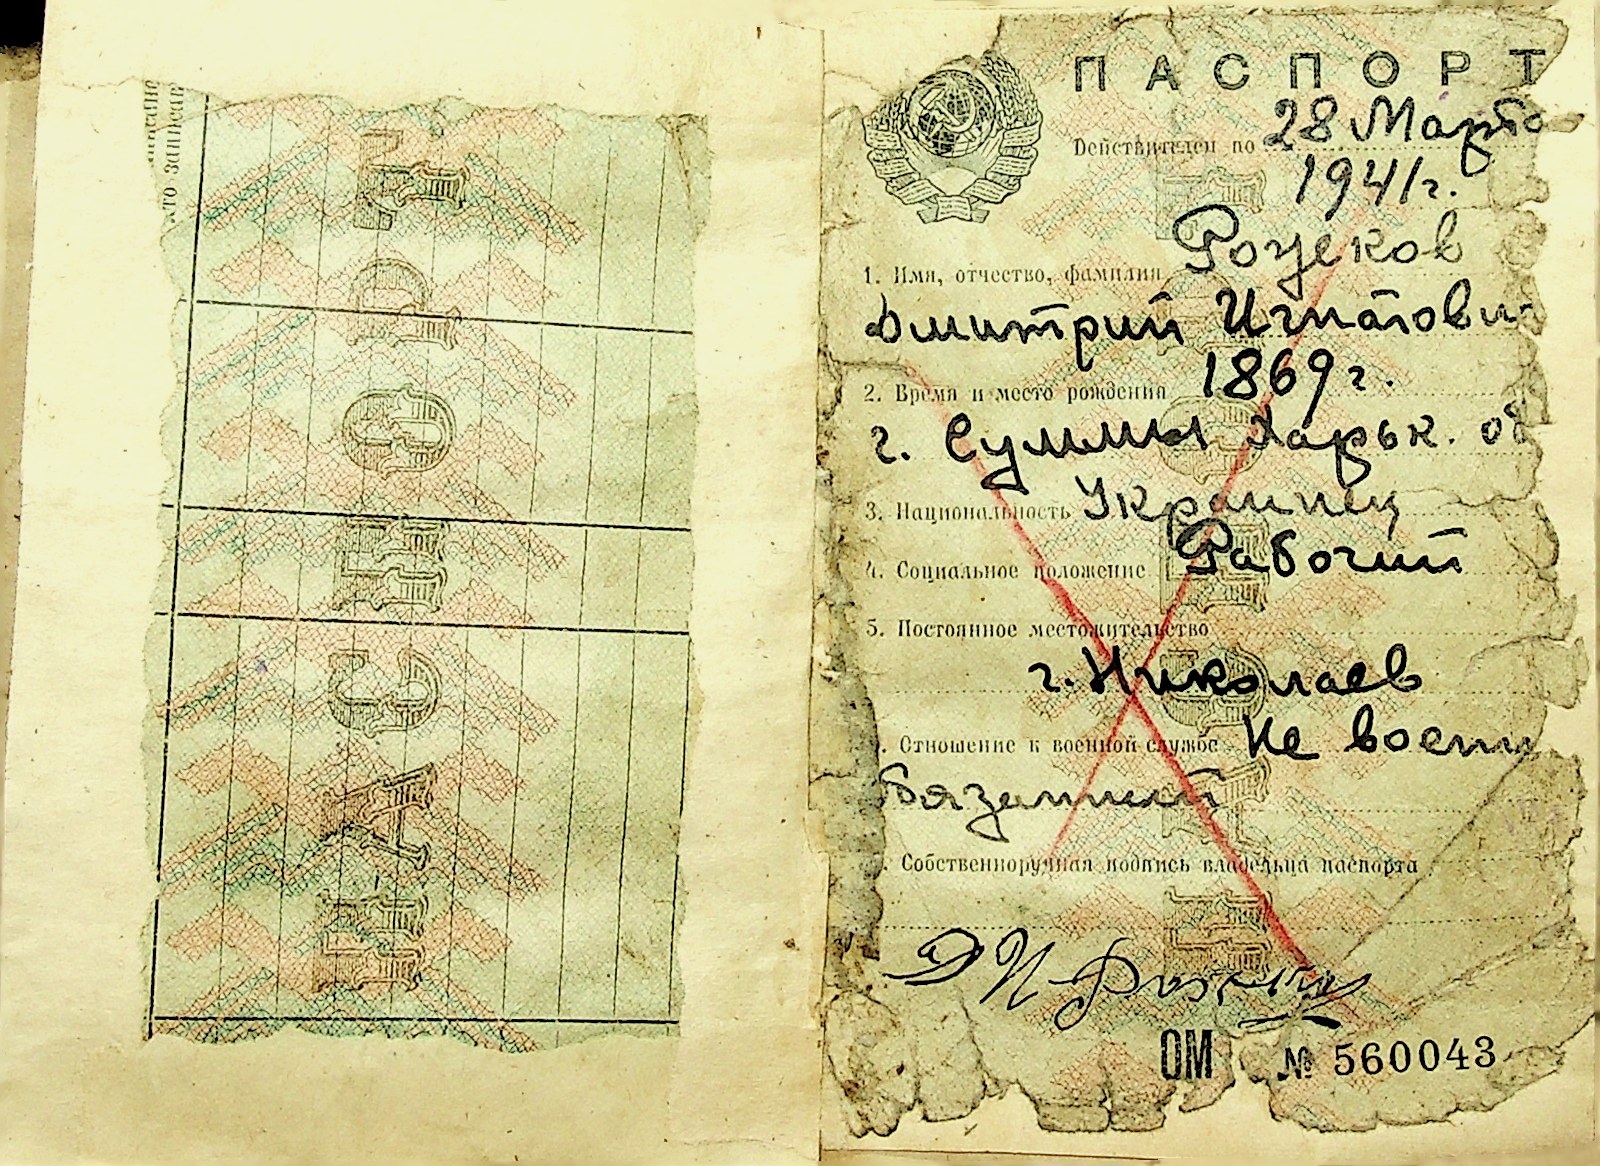 ПАСПОРТ
Действителен по 28 Марта
1941г.
1. Имя, отчество, фамилия
Дмитрий Игнатови
2. Время и место рождения 1869г.
г. Суммы Харьк. об
3. Национальность Украинец
4. Социальное положение Рабочий
5. Постоянное местожительство
г. Николаев
. Отношение к военной службе Не воен
бязанный
. Собственноручная подпись владельца паспорта
ОМ № 560043
ПАСПОРТ